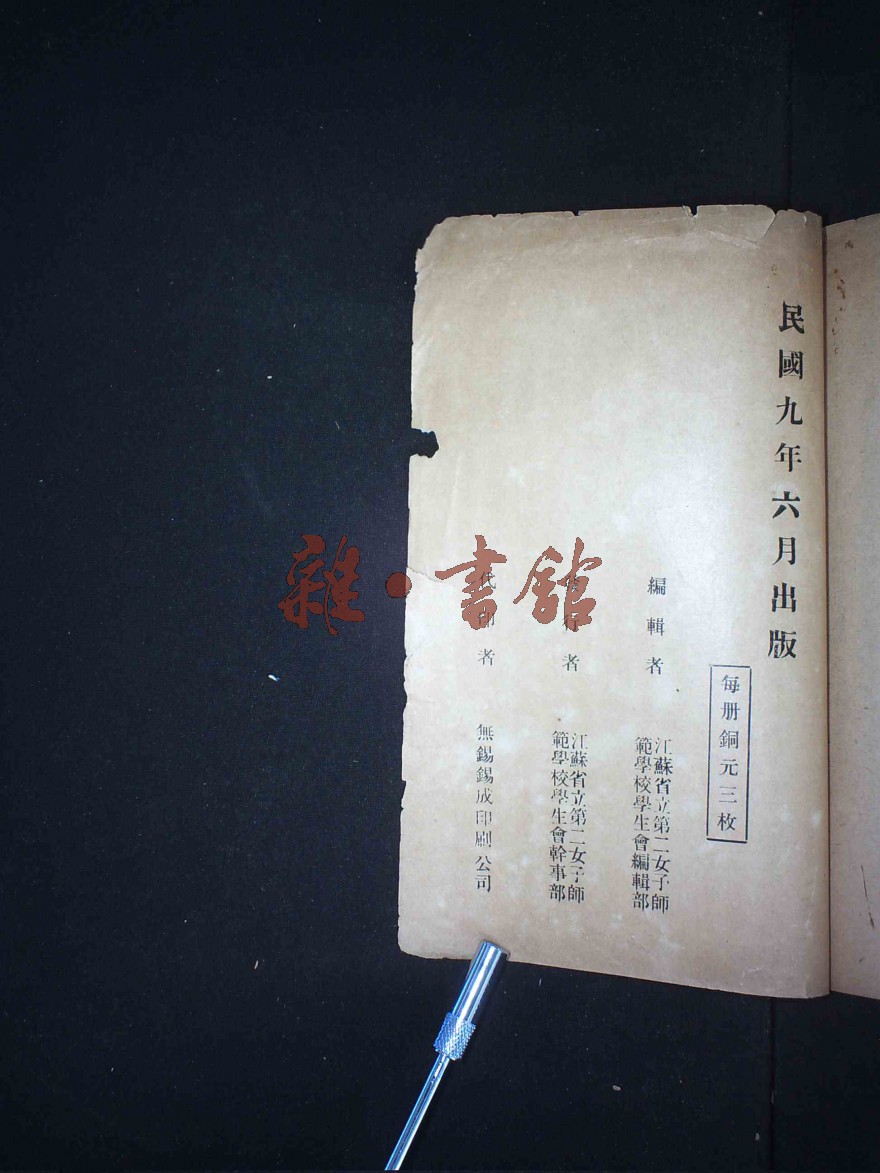 民國九年六月出版
每册銅元三枚
編輯者
江蘇省立第二女子師
範學校學生會編輯部
發行者
江蘇省立第二女子師
範學校學生會幹事部
代印者
無錫錫成印刷公司
雜·書館